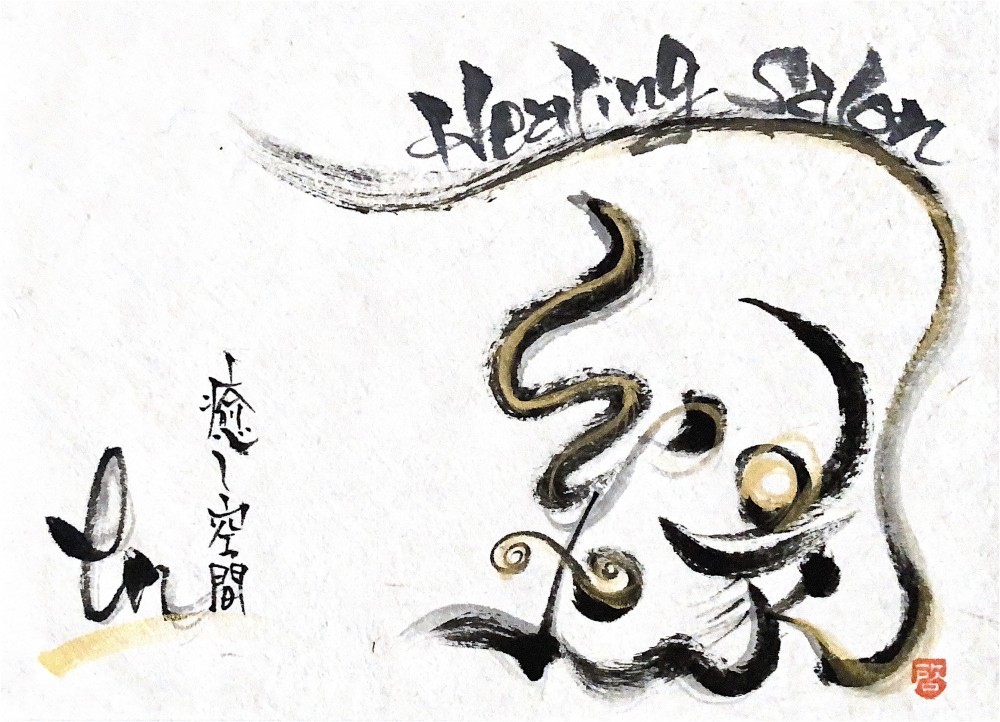 Healing Salon
癒し空間
en
啓